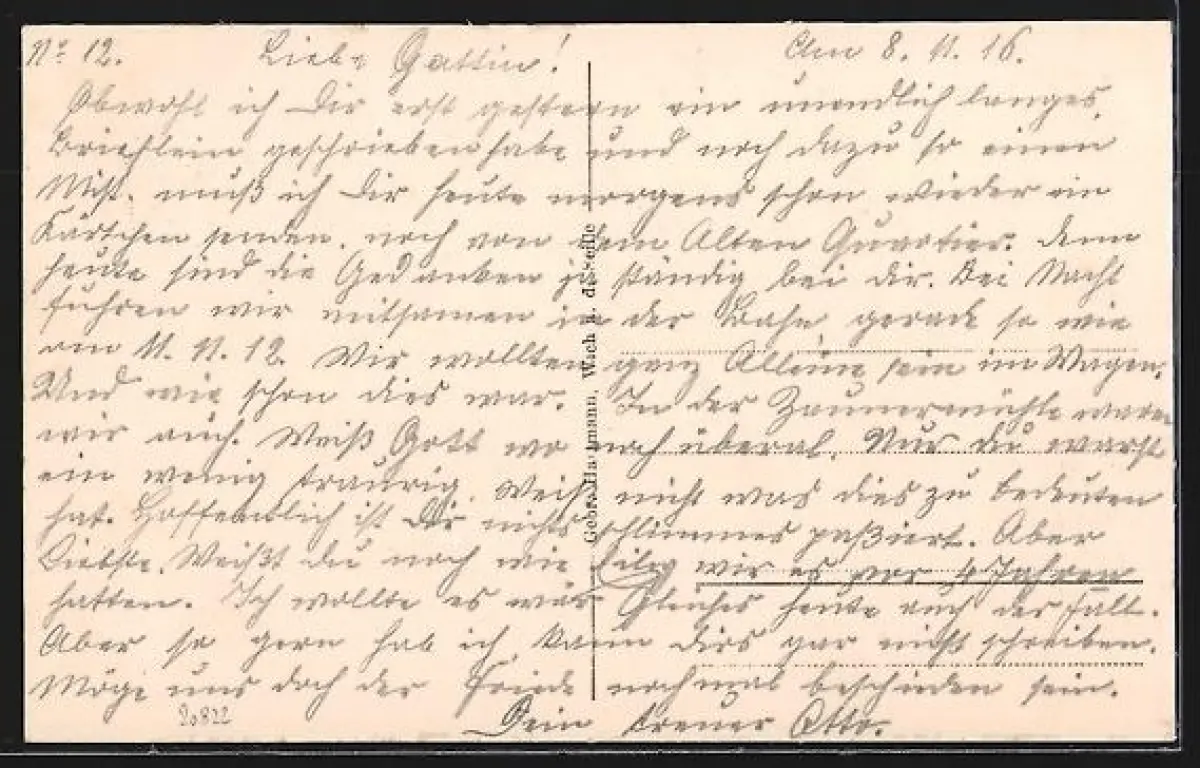 No 12. Liebe Gattin! Am 8. 11. 16.
Obwohl ich Dir erst gestern ein unendlich langes
Brieflein geschrieben habe und noch dazu so einen
Mist. muß ich Dir heute morgens schon wieder ein
Kärtchen senden. noch von dem Alten Quartier. Denn
heute sind die Gedanken ja ständig bei dir. Bei Nacht
fuhren wir mitsamen in der Bahn, gerade so wie
am 11. 11. 12. Wir wollten ganz Alleine sein im Wagen.
Und wie schön dies war. In der waren
wir auch. Weiß Gott wo noch überal. Nur du warst
ein wenig traurig. Weiß nicht was dies zu bedeuten
hat. Hoffendlich ist Dir nichts schlimmes paßiert. Aber
Liebste. Weißt du noch wie eilig wir es vor 4 Jahren
hatten. Ich wollte es wär Gleiches heute auch der Fall.
Aber so gern hab ich kann dirs gar nicht schreiben.
Möge uns doch der Friede nochmal beschieden sein.
Dein treuer Otto.
20822
Gebr. Hartmann, Wach a. d.